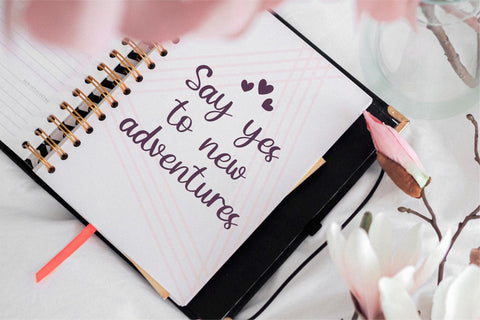 Say yes
to new
adventures